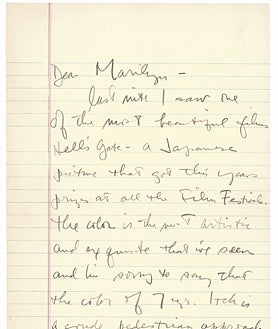 Dear Marilyn -
last nite I saw one
of the most beautiful films
Hell's Gate - a Japanese
picture that got this years
prizes at all the Film Festivals.
the color is the most artistic
and exquisite that I've seen
and I'm sorry to say that
the color of 7 yr. Itch is
a crude pedestrian approach